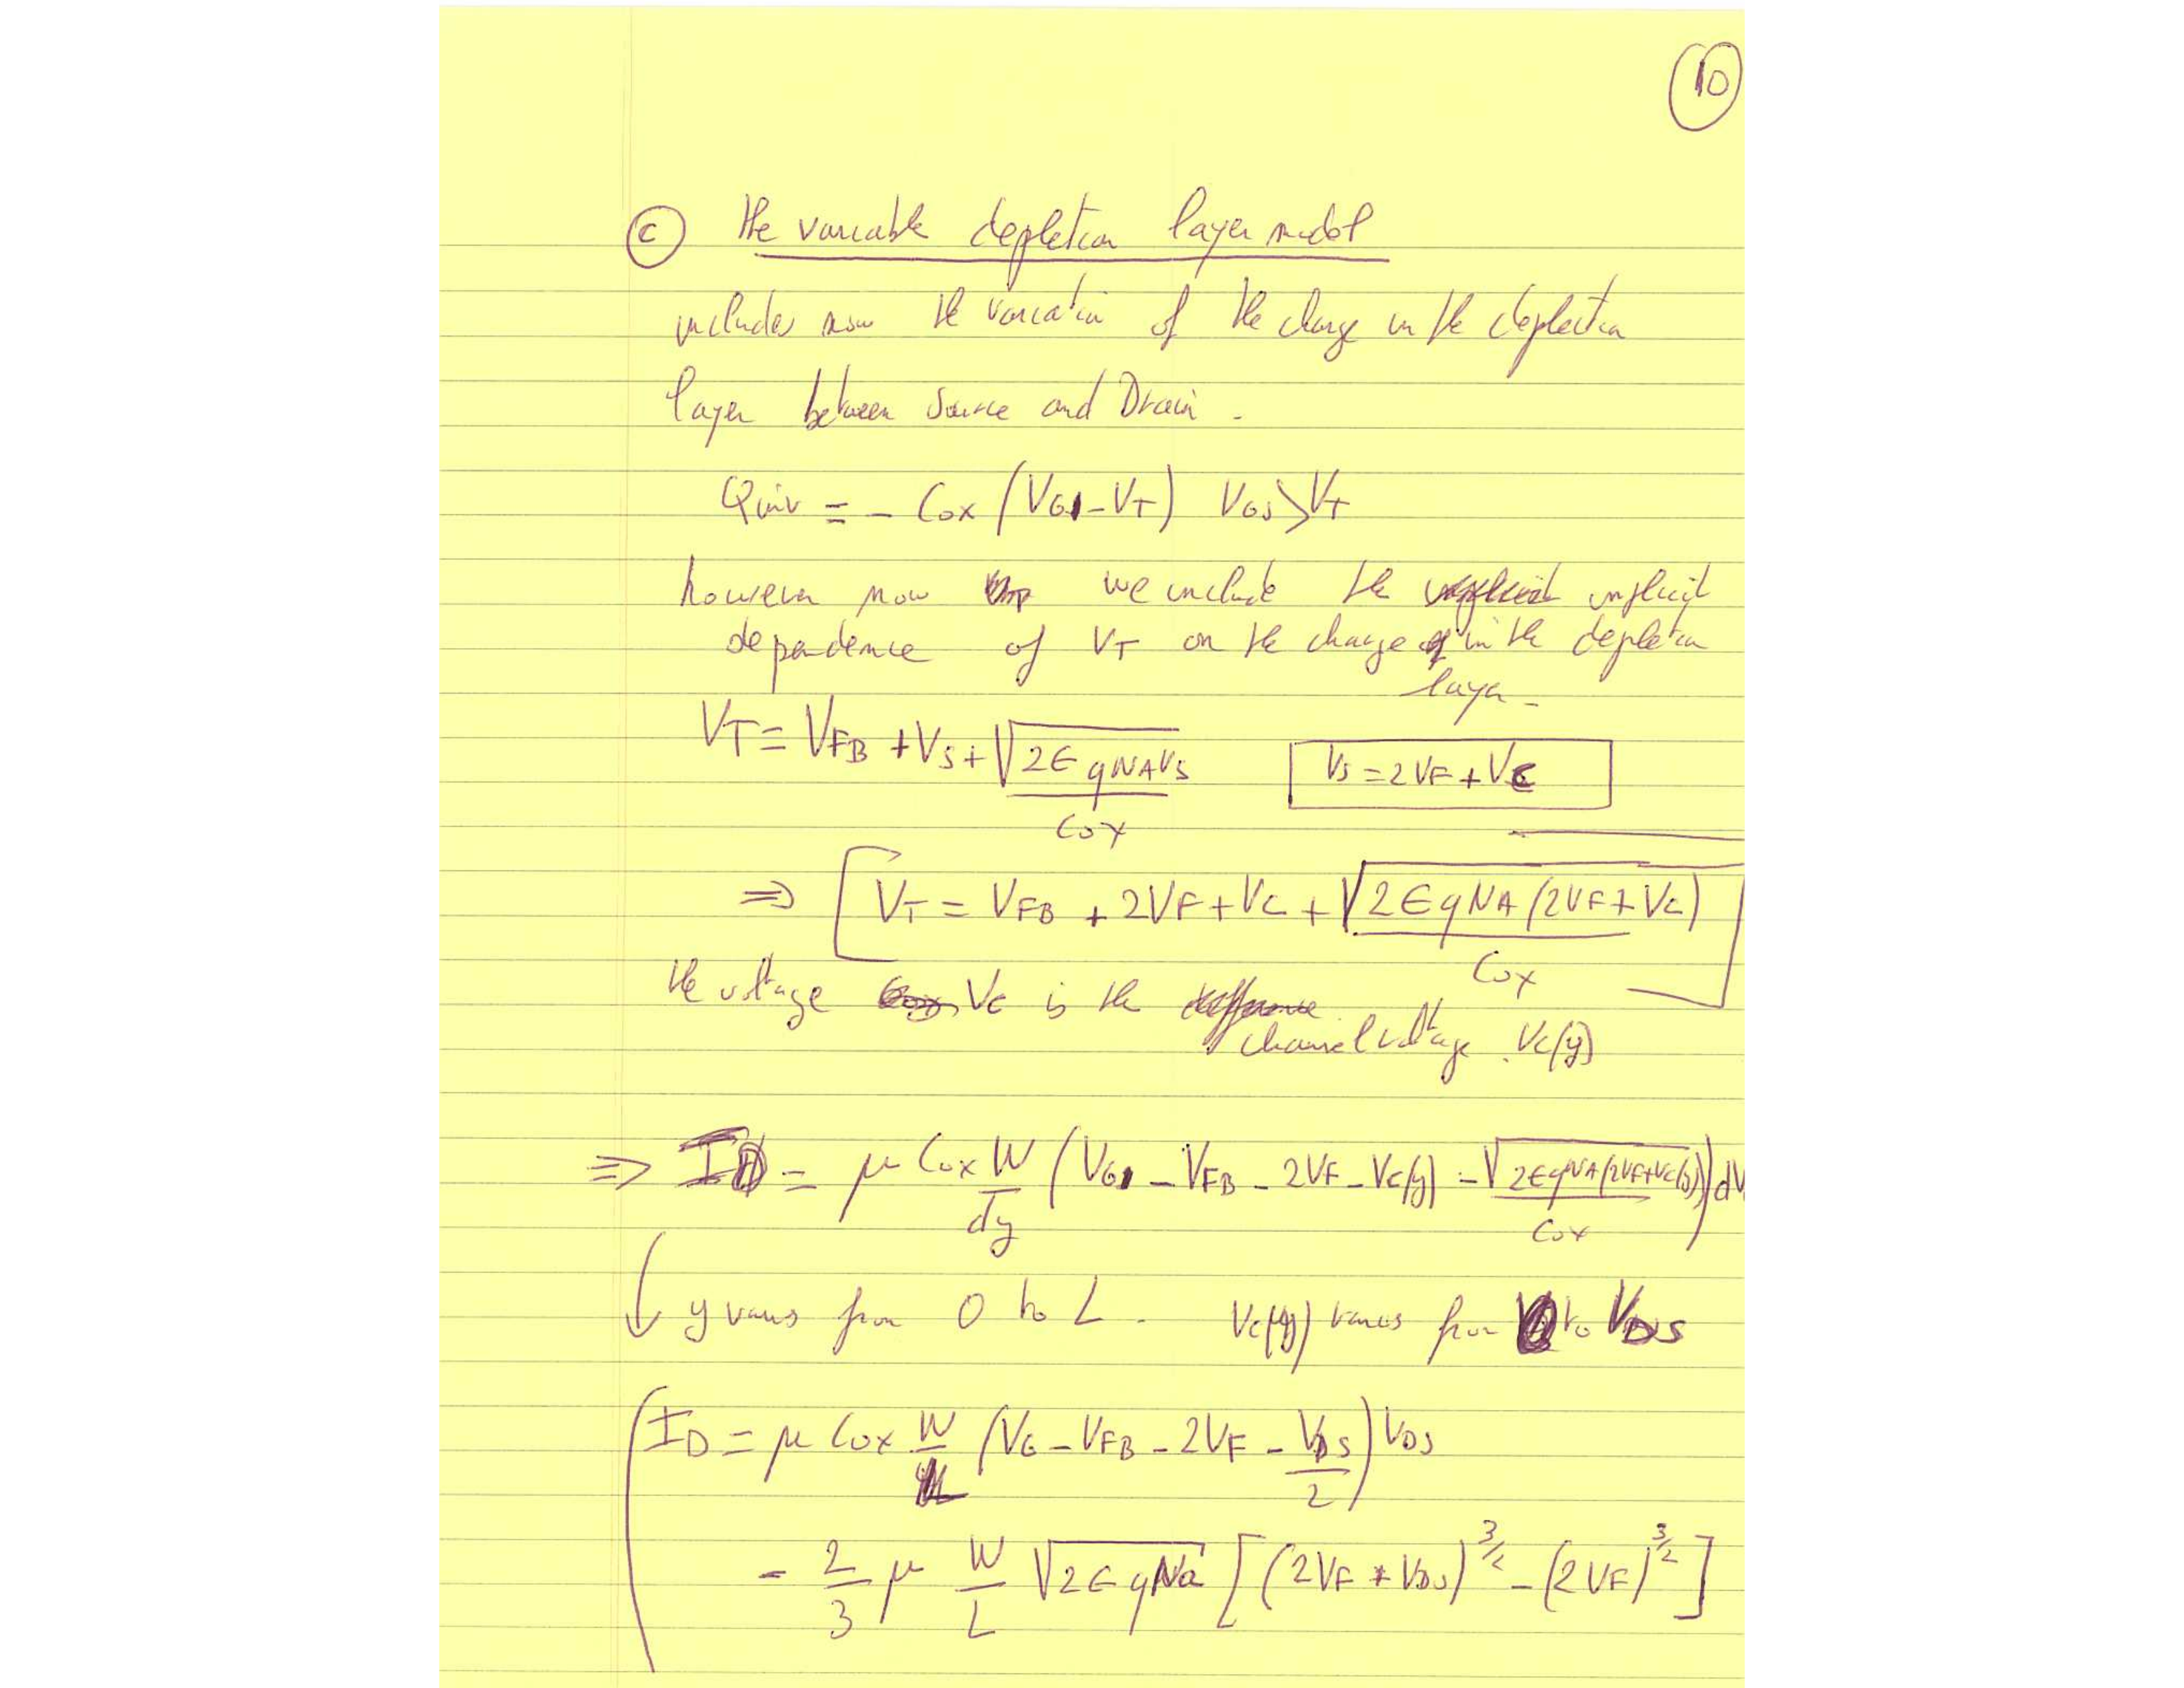 10
(c) the variable depletion layer model
includes now the variation of the charge in the deplection
layer between Source and Drain.
Qinv = - Cox (VG1 - VT) VGS > VT
however now we include the implicit
dependence of VT on the charge in the depletion
layer -
VT = VFB + VS + √(2ϵ q NA VS) / Cox    VS = 2VF + VC
⇒ [VT = VFB + 2VF + VC + √(2ϵ q NA (2VF + VC)) / Cox]
the voltage VC is the
channel voltage. VC(y)
⇒ ID = μ Cox W/dy (VG1 - VFB - 2VF - VC(y) - √(2ϵ q NA (2VF + VC(y))) / Cox) dV
↓ y varies from 0 to L. VC(y) varies from 0 to VDS
ID = μ Cox W/L (VG - VFB - 2VF - VDS/2) VDS
- 2/3 μ W/L √(2ϵ q Na) [(2VF + VDS)^3/2 - (2VF)^3/2]